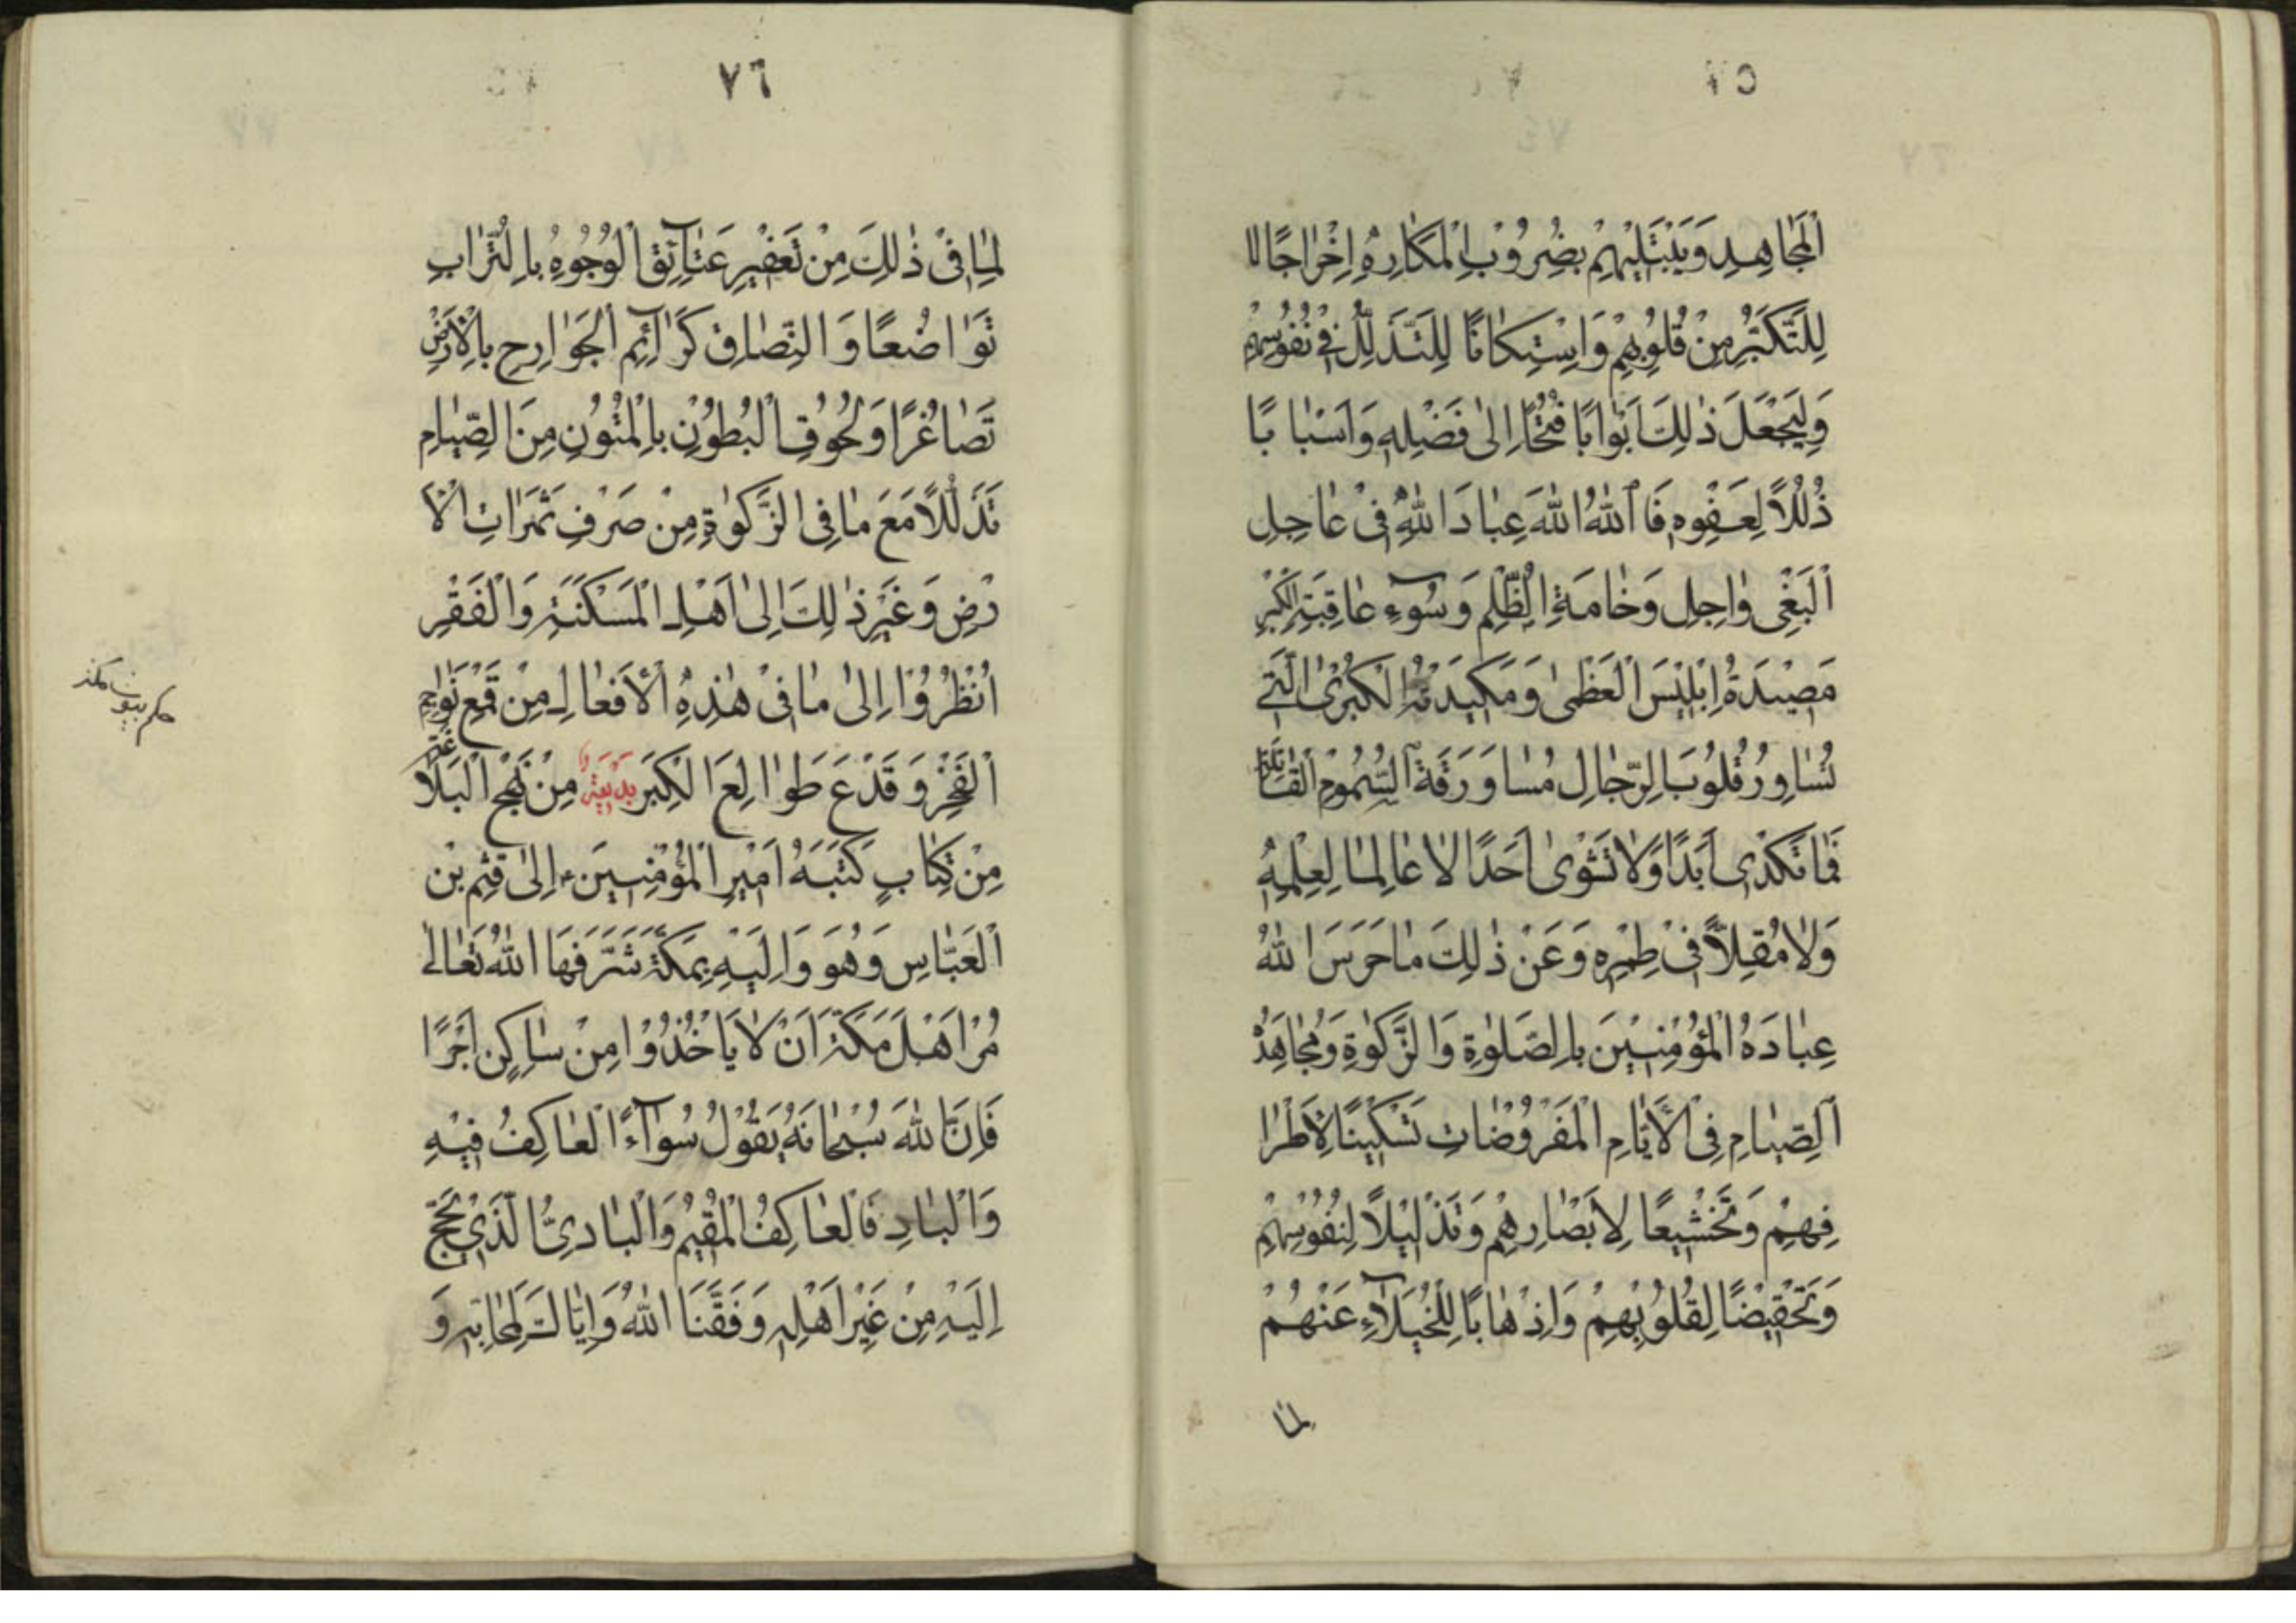 اَلْمَجَاهِدِ وَيَبْتَلِيْهِمْ بِضُرُوْبِ الْمَكَارِهِ اِخْرَاجًا لا
لِلتَّكَبُّرِ مِنْ قُلُوْبِهِمْ وَاِسْتِكَانًا لِلتَّذَلُّلِ فِيْ نُفُوْسِهِمْ
وَلِيَجْعَلَ ذٰلِكَ اَبْوَابًا فُتُحًا اِلىٰ فَضْلِهِ وَاَسْبَابًا
ذُلُلًا لِعَفْوِهِ فَاَللّٰهُ اللّٰهَ عِبَادَ اللّٰهِ فِىْ عَاجِلِ
اَلْبَغْىِ وٰاجِلِ وَخَامَةِ الظُّلْمِ وَسُوْءِ عَاقِبَةِ الْكِبْرِ
مَصْيَدَةُ اِبْلِيْسَ الْعُظْمىٰ وَمَكِيْدَتُهُ الْكُبْرىٰ الَّتِىْ
تُسَاوِرُ قُلُوْبَ الرِّجَالِ مُسَاوَرَةَ السُّمُوْمِ الْقَاتِلَةِ
فَمَا تَكْدِى اَبَدًا وَلَا تَشْوِىْ اَحَدًا لَا عَالِمًا لِعِلْمِهِ
وَلَا مُقِلًّا فِىْ طِمْرِهِ وَعَنْ ذٰلِكَ مَا حَرَسَ اللّٰهُ
عِبَادَهُ الْمُؤْمِنِيْنَ بِالصَّلٰوةِ وَالزَّكٰوةِ وَمُجَاهَدَةِ
اَلصِّيَامِ فِى الْاَيَّامِ الْمَفْرُوْضَاتِ تَسْكِيْنًا لِاَطْرَا
فِهِمْ وَتَخْشِيْعًا لِاَبْصَارِهِمْ وَتَذْلِيْلًا لِنُفُوْسِهِمْ
وَتَخْفِيْضًا لِقُلُوْبِهِمْ وَاِذْهَابًا لِلْخُيَلَآءِ عَنْهُمْ
لما
٧٦
لِمَا فِىْ ذٰلِكَ مِنْ تَعْفِيْرِ عَتَآئِقِ الْوُجُوْهِ بِالتُّرَابِ
تَوَاضُعًا وَالْتِصَاقِ كَرَآئِمِ الْجَوَارِحِ بِالْاَرْضِ
تَصَاغُرًا وَلُحُوْقِ الْبُطُوْنِ بِالْمُتُوْنِ مِنَ الصِّيَامِ
تَذَلُّلًا مَعَ مَا فِى الزَّكٰوةِ مِنْ صَرْفِ ثَمَرَاتِ الْاَ
رْضِ وَغَيْرِ ذٰلِكَ اِلىٰ اَهْلِ الْمَسْكَنَةِ وَالْفَقْرِ
اُنْظُرُوْا اِلىٰ مَا فِىْ هٰذِهِ الْاَفْعَالِ مِنْ قَمْعِ نَوَاجِمِ
اَلْفَخْرِ وَقَدْعِ طَوَالِعِ الْكِبْرِ بديعة مِنْ نَهْجِ الْبَلَاغَةِ
مِنْ كِتَابٍ كَتَبَهُ اَمِيْرِ الْمُؤْمِنِيْنَ ع اِلىٰ قُثَمِ بْنِ
اَلْعَبَّاسِ وَهُوَ وَالِيَهِ بِمَكَّةَ شَرَّفَهَا اللّٰهُ تَعَالىٰ
مُرْ اَهْلَ مَكَّةَ اَنْ لَا يَاْخُذُوْا مِنْ سَاكِنٍ اَجْرًا
فَاِنَّ اللّٰهَ سُبْحَانَهُ يَقُوْلُ سُوَآءً الْعَاكِفُ فِيْهِ
وَالْبَادِ فَالْعَاكِفُ الْمُقِيْمُ وَالْبَادِىُّ الَّذِىْ يَحُجُّ
اِلَيْهِ مِنْ غَيْرِ اَهْلِهِ وَفَّقَنَا اللّٰهُ وَاِيَّاكَ لِمَحَابِّهِ وَ